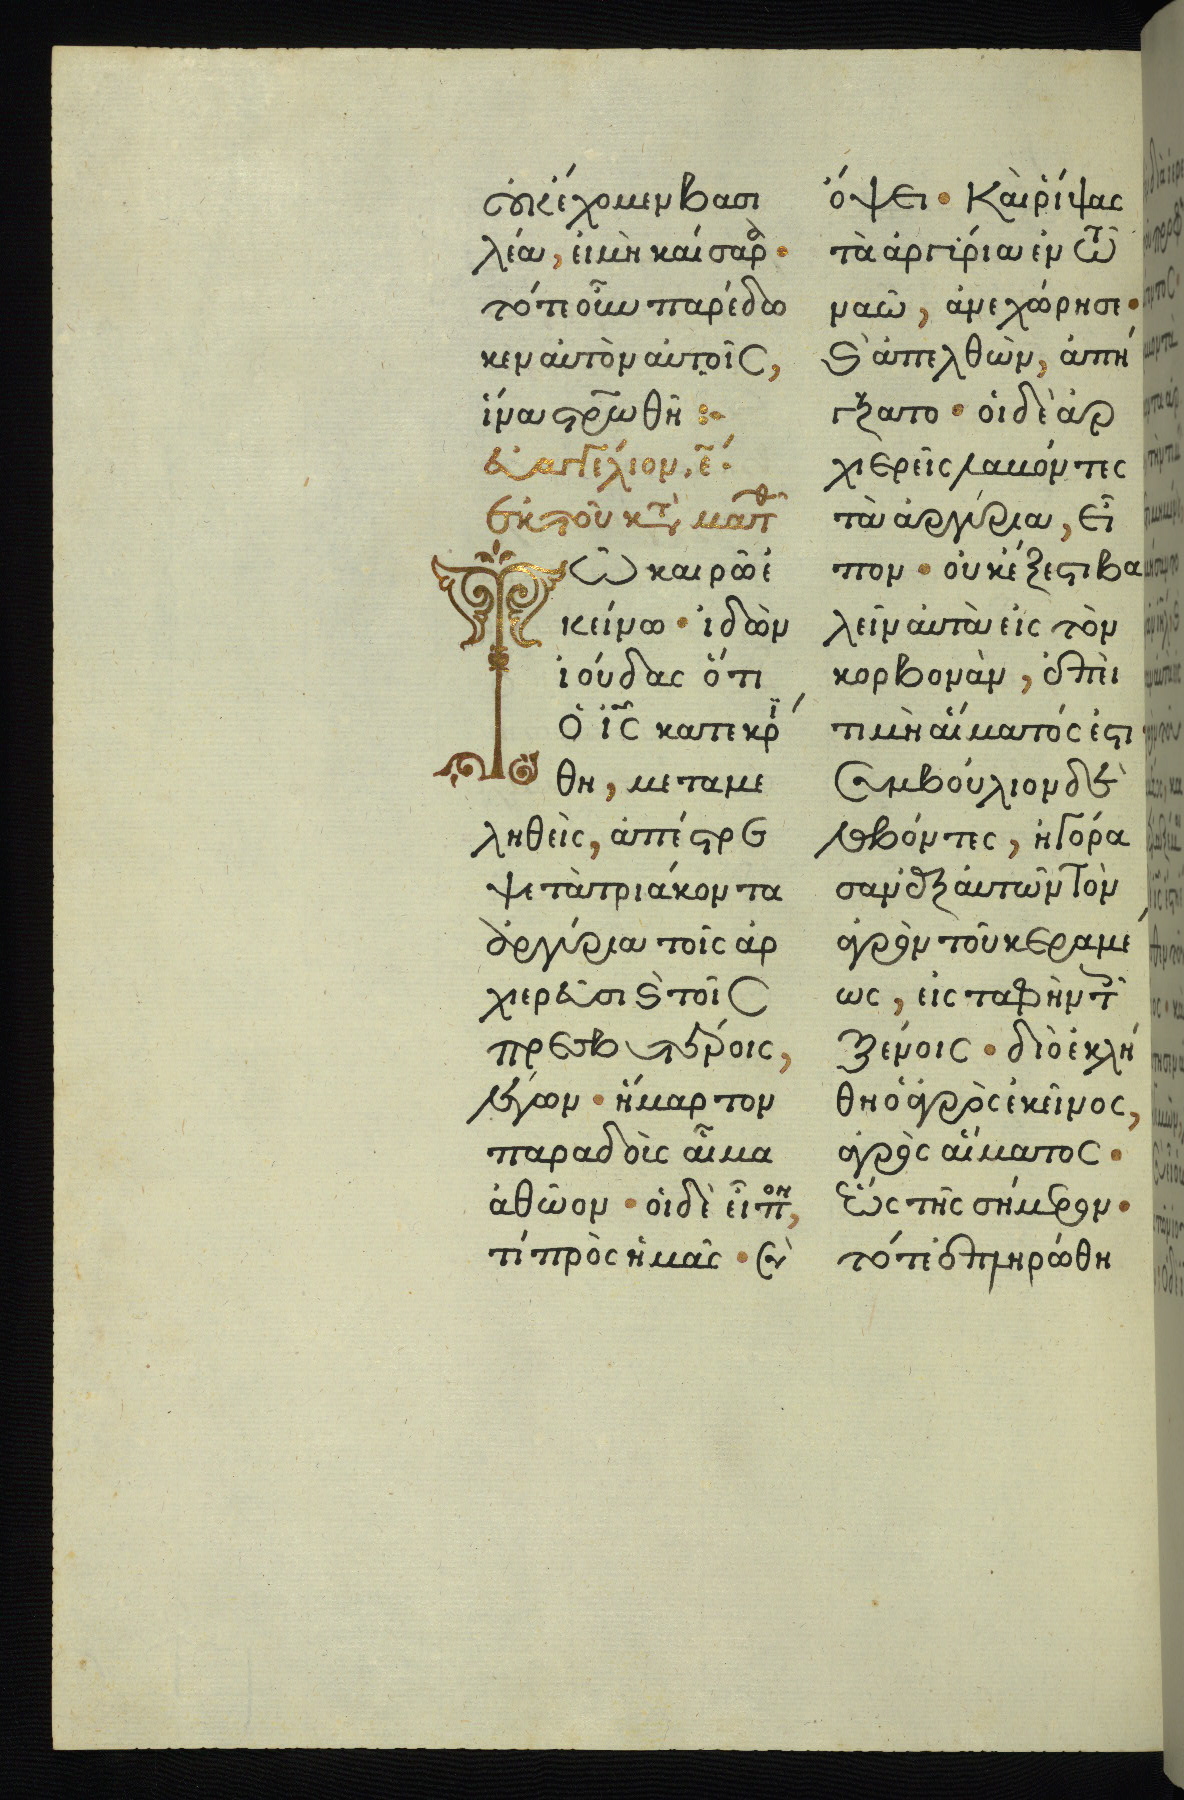 οὐκ ἔχομεν βασι
λέα, εἰ μὴ καίσαρ·
τότε οὖν παρέδω
κεν αὐτὸν αὐτοῖς,
ἵνα στρωθῆ :~
εὐαγγέλιον, ε̄·
ἐκ τοῦ κτ, ματθ
Τῶ καιρῶ ἐ
κείνω· ἰδὼν
ἰούδας ὅτι
ὁ ις κατεκρί
θη, μεταμε
ληθεὶς, ἀπέστρε
ψε τὰ τριάκοντα
ἀργύρια τοῖς ἀρ
χιερεῦσι καὶ τοῖς
πρεσβυτέροις,
λέγων· ἥμαρτον
παραδοὺς αἷμα
ἀθῶον· οἱ δὲ εἶπον,
τί πρὸς ἡμᾶς· σὺ
ὄψει· Καὶ ῥίψας
τὰ ἀργύρια ἐν τῶ
ναῶ, ἀνεχώρησε·
καὶ ἀπελθὼν, ἀπή
γξατο· οἱ δὲ ἀρ
χιερεῖς λαβόντες
τὰ ἀργύρια, εἶ
πον· οὐκ ἔξεστι βα
λεῖν αὐτὰ εἰς τὸν
κορβονὰν, ἐπεὶ
τιμὴ αἵματός ἐστι
συμβούλιον δὲ
λαβόντες, ἠγόρα
σαν ἐξ αὐτῶν τὸν
ἀγρὸν τοῦ κεραμέ
ως, εἰς ταφὴν τοῖς
ξένοις· διὸ ἐκλή
θη ὁ ἀγρὸς ἐκεῖνος,
ἀγρὸς αἵματος·
ἕως τῆς σήμερον·
τότε ἐπληρώθη